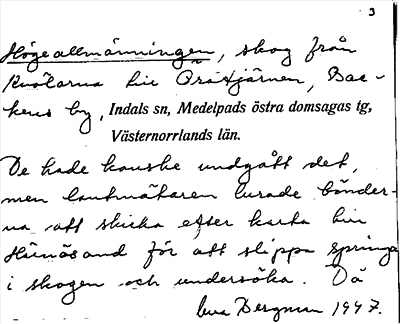 3
Högeallmänningen, skog från
kvotarna till Öratjärnen, Bac-
kens by, Indals sn, Medelpads östra domsagas tg,
Västernorrlands län.
De hade kanske undgått det,
men lantmätaren lurade bönder-
na att skicka efter karta till
Härnösand för att slippa springa
i skogen och undersöka. Då
Bergman 1997.